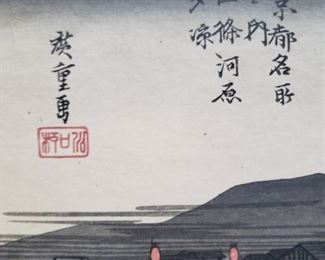 京都名所
内
四條河原
夕涼
廣重画